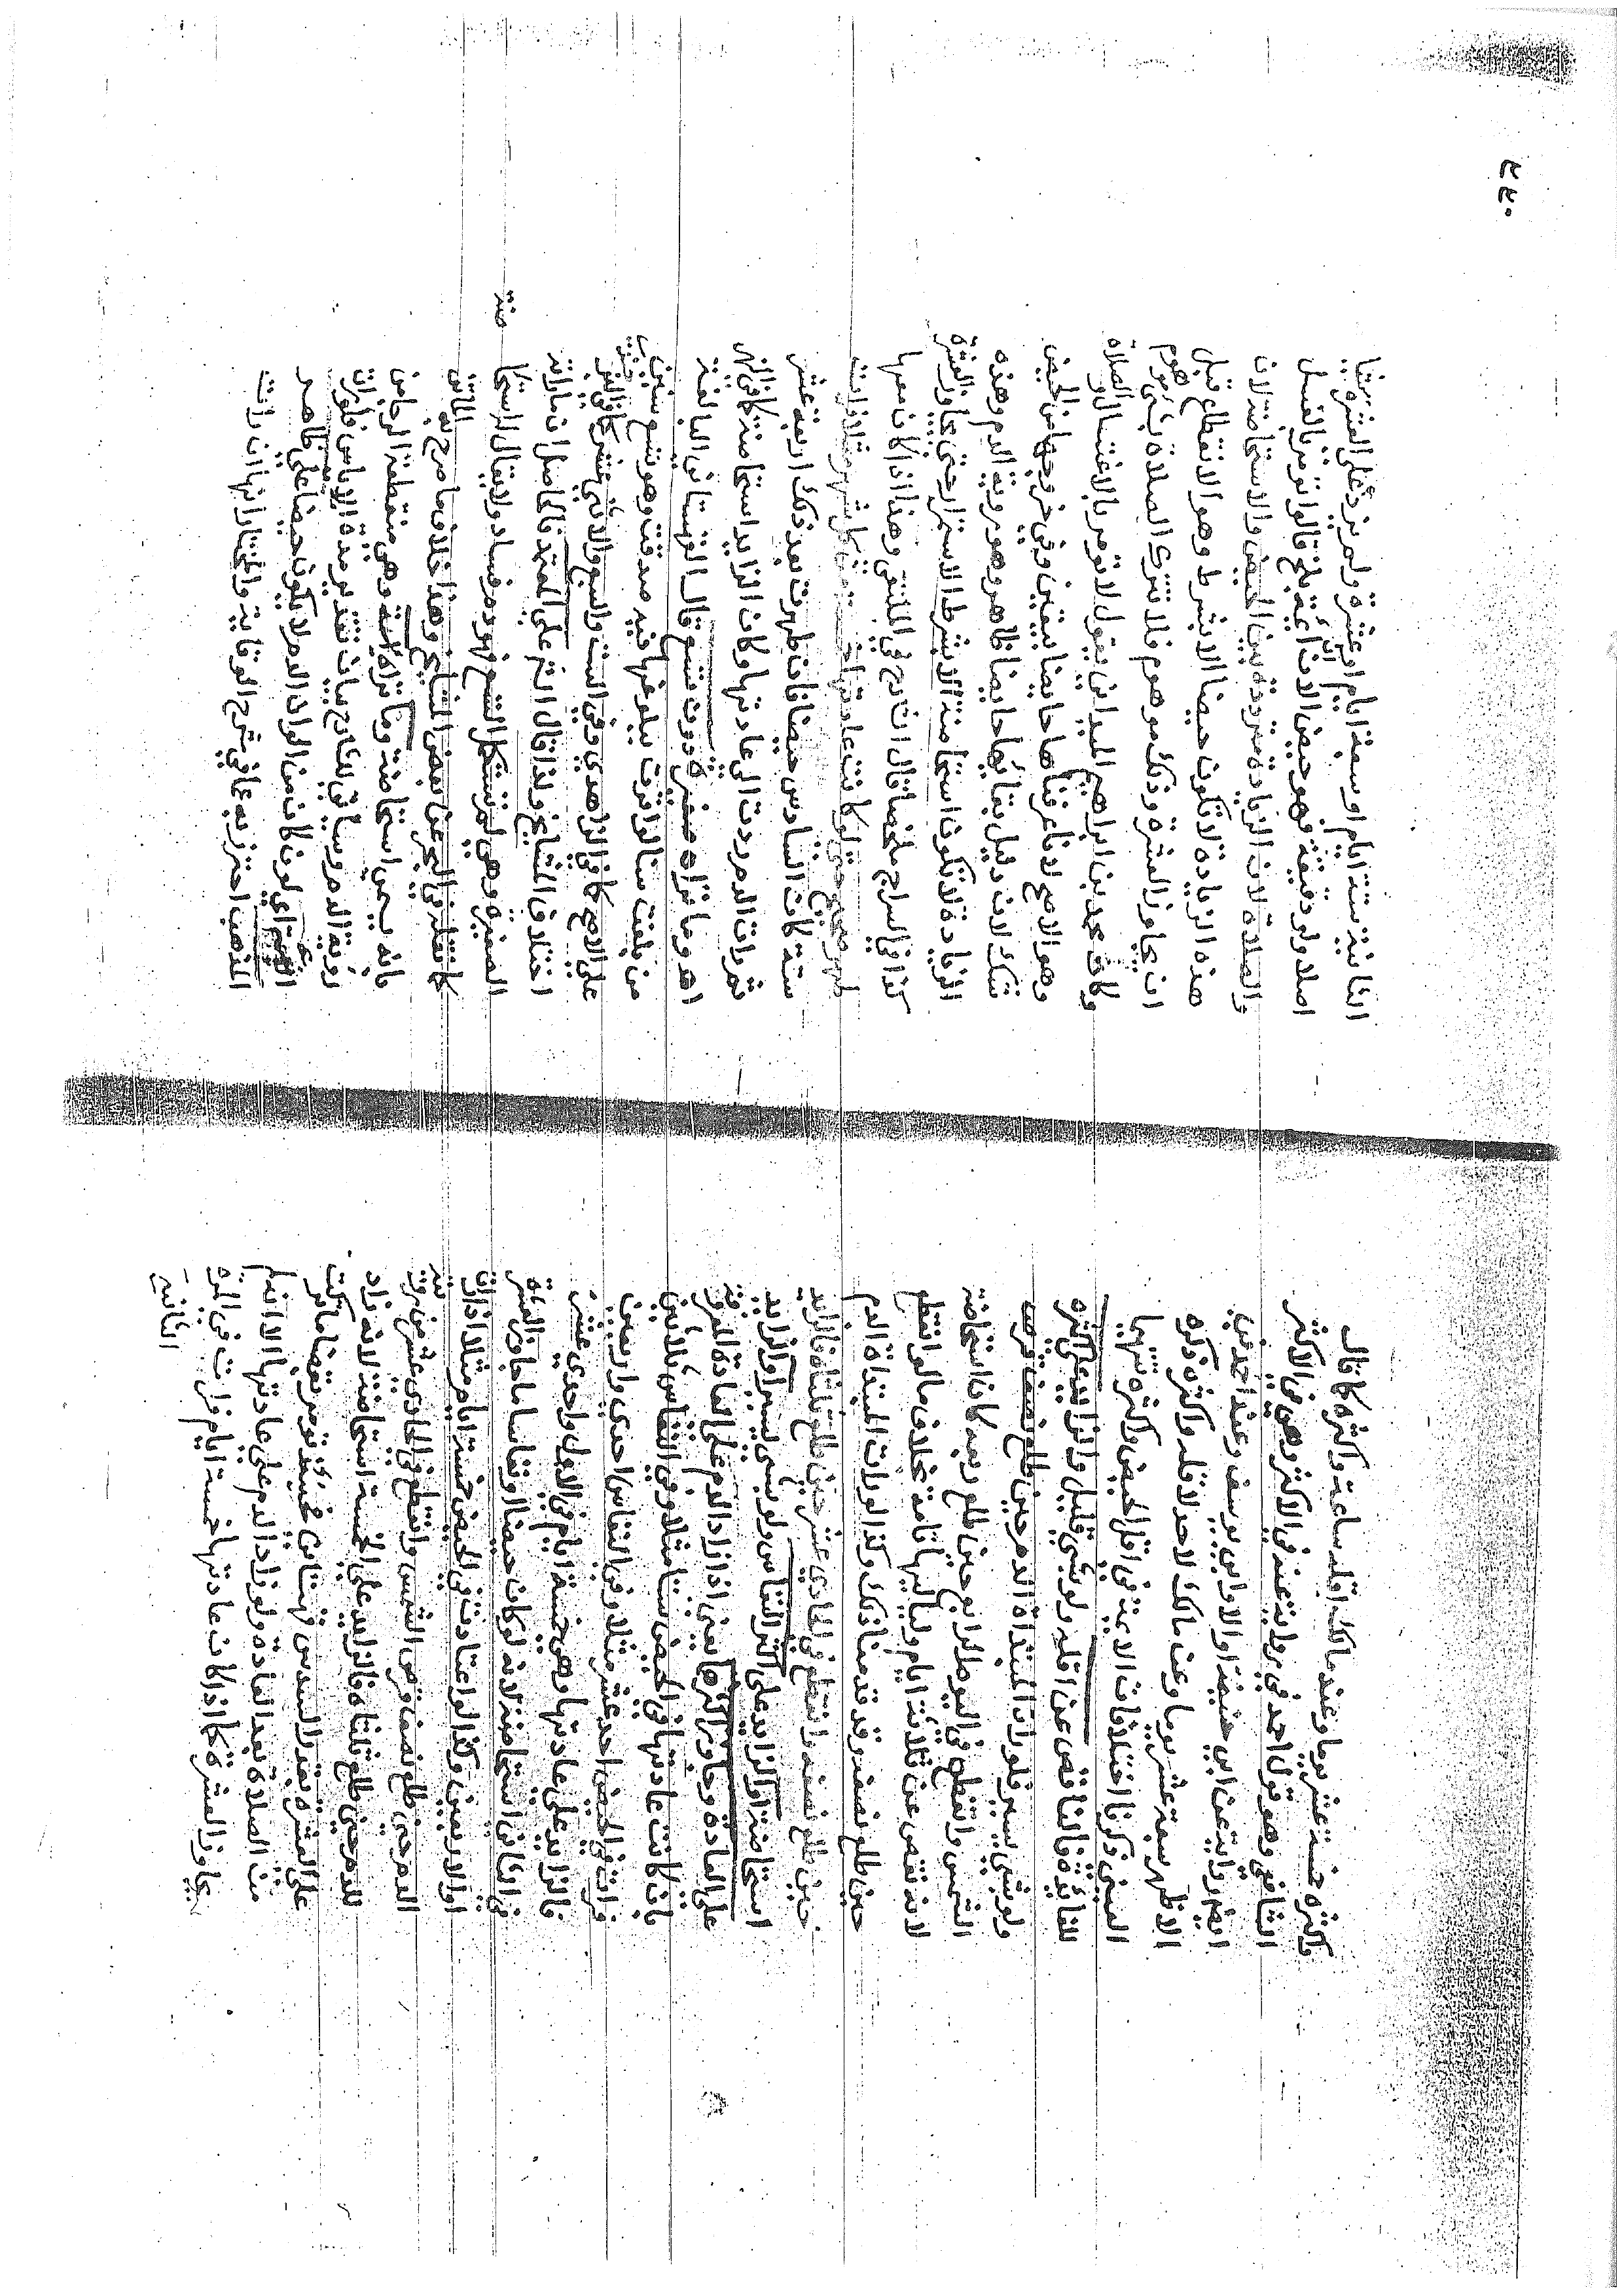 واكثره خمسة عشر يوما وعند مالك اقله ساعة واكثره كما قال
الشافعي وهو قول احمد في رواية عنه في الاكثر وهي في الاكثر
ايضا رواية عن ابي حنيفة اولا وابي يوسف وعند احمد في
الاظهر سبعة عشر يوما وعن مالك لا حد لاقله واكثره ذكره
العيني وذكرنا اختلافات الائمة في اقل الحيض واكثره تتميما
للفائدة والناقص عن اقله ولو بشيء قليل والزائد على اكثره
ولو بشيء يسير فلو رات المبتداة الدم حين طلع نصف قرص
الشمس وانقطع في اليوم الرابع حين طلع ربعه كان استحاضة
لانه نقص عن ثلاثة ايام ولياليها تامة بخلاف ما لو انقطع
حين طلع نصفه وقد مضا ذلك وكذا لو رات المبتداة الدم
حين طلع نصفه وانقطع في الحادي عشر حين طلع ثلثاه فالزايد
استحاضة او الزايد على اكثر النفاس ولو بشيء يسير او الزايد
على العادة وجاوز اكثرهما يعني اذا زاد الدم على العادة المعروفة
بان كانت عادتها في الحيض ستا مثلا وفي النفاس ثلاثين
فرات في الحيض احد عشر مثلا وفي النفاس احدى واربعين
فالزايد على عادتها وهي خمسة ايام في الاول واحدى عشر
في الثاني استحاضة لانه لو كان حيضا او نفاسا ما جاوز العشرة
او الاربعين وكذا لو اعتادت في الحيض خمسة ايام مثلا فرات
الدم حين طلع نصف قرص الشمس وانقطع في الحادي عشر من رويته
للدم حين طلع ثلثاه فالزايد على الخمسة استحاضة لانه زاد
على العشرة بقدر السدس قهستاني فحينئذ تومر بقضا ما تركت
من الصلاة بعد العادة ولو زاد الدم على عادتها الا انه لم
يجاوز العشرة كما اذا كانت عادتها خمسة ايام فرات في المرة
الثانية
الثانية ستة ايام او سبعة ايام او عشرة ولم يزد على العشرة شيئا
اصلا ولو دقيقة فهو حيض الا ان ائمة بلخ قالوا تومر بالغسل
والصلاة لان الزيادة مترددة بين الحيض والاستحاضة لان
هذه الزيادة لا تكون حيضا الا بشرط وهو الانقطاع قبل
ان يجاوز العشرة وذلك موهوم فلا تترك الصلاة بشيء موهوم
وكان محمد بن ابراهيم الميداني يقول لا تومر بالاغتسال والصلاة
وهو الاصح لانا عرفناها حايضا بيقين وفي خروجها من الحيض
شك لان دليل بقائها حايضا ظاهر وهو روية الدم وهذه
الزيادة لا تكون استحاضة الا بشرط الاستمرار حتى يجاوز العشرة
كذا في السراج ملخصا قال الشارح في الملتقى وهذا اذا كان معها
طهر صحيح حتى لو كانت عادتها من كل شهر مثلا فرات
ستة كان السادس حيضا فان طهرت بعد ذلك اربعة عشر
ثم رات الدم ردت الى عادتها وكان الزايد استحاضة كما في النهر
اهـ وما تراه صغيرة دون تسع قال القهستاني البالغة
من بلغت سنا لو اقرت ببلوغها فيه صدقت وهو تسع سنين
على الاصح كما في الزاهدي وفي الست والسبع والاثني عشر
اختلاف المشايخ ولذا قال الشارح على المعتمد فالحاصل ان ما راته
الصغيرة وهي لم تستكمل التسع فهو دم فساد ولا يقال له استحاضة
كما نقله في البحر عن بعض المشايخ وهذا خلاف ما صرح به الماتن
فانه يسمى استحاضة وما تراه آيسة وهي منقطعة الرجا من
روية الدم وسياتي للشارح بيان تقدير مدة الاياس فلو رات
اي لون كان من الوان الدم لا يكون حيضا على ظاهر
المذهب احترز به عما في شرح الوقاية والمختار انها ان رات